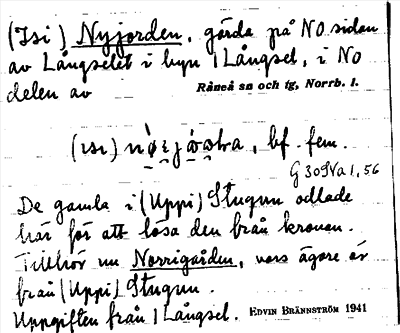 (Isi) Nyjorden, gärda på NO sidan
av Långselet i byn 1 Långsel, i NO
delen av
Råneå sn och tg, Norrb. l.
(ısı) , bf. fem.
G 309Va 1, 56
De gamla i (Uppi) Stugun odlade
här för att lösa den från kronan.
Tillhör nu Norrigården, vars ägare är
från (Uppi) Stugun.
Uppgiften från 1 Långsel. EDVIN BRÄNNSTRÖM 1941